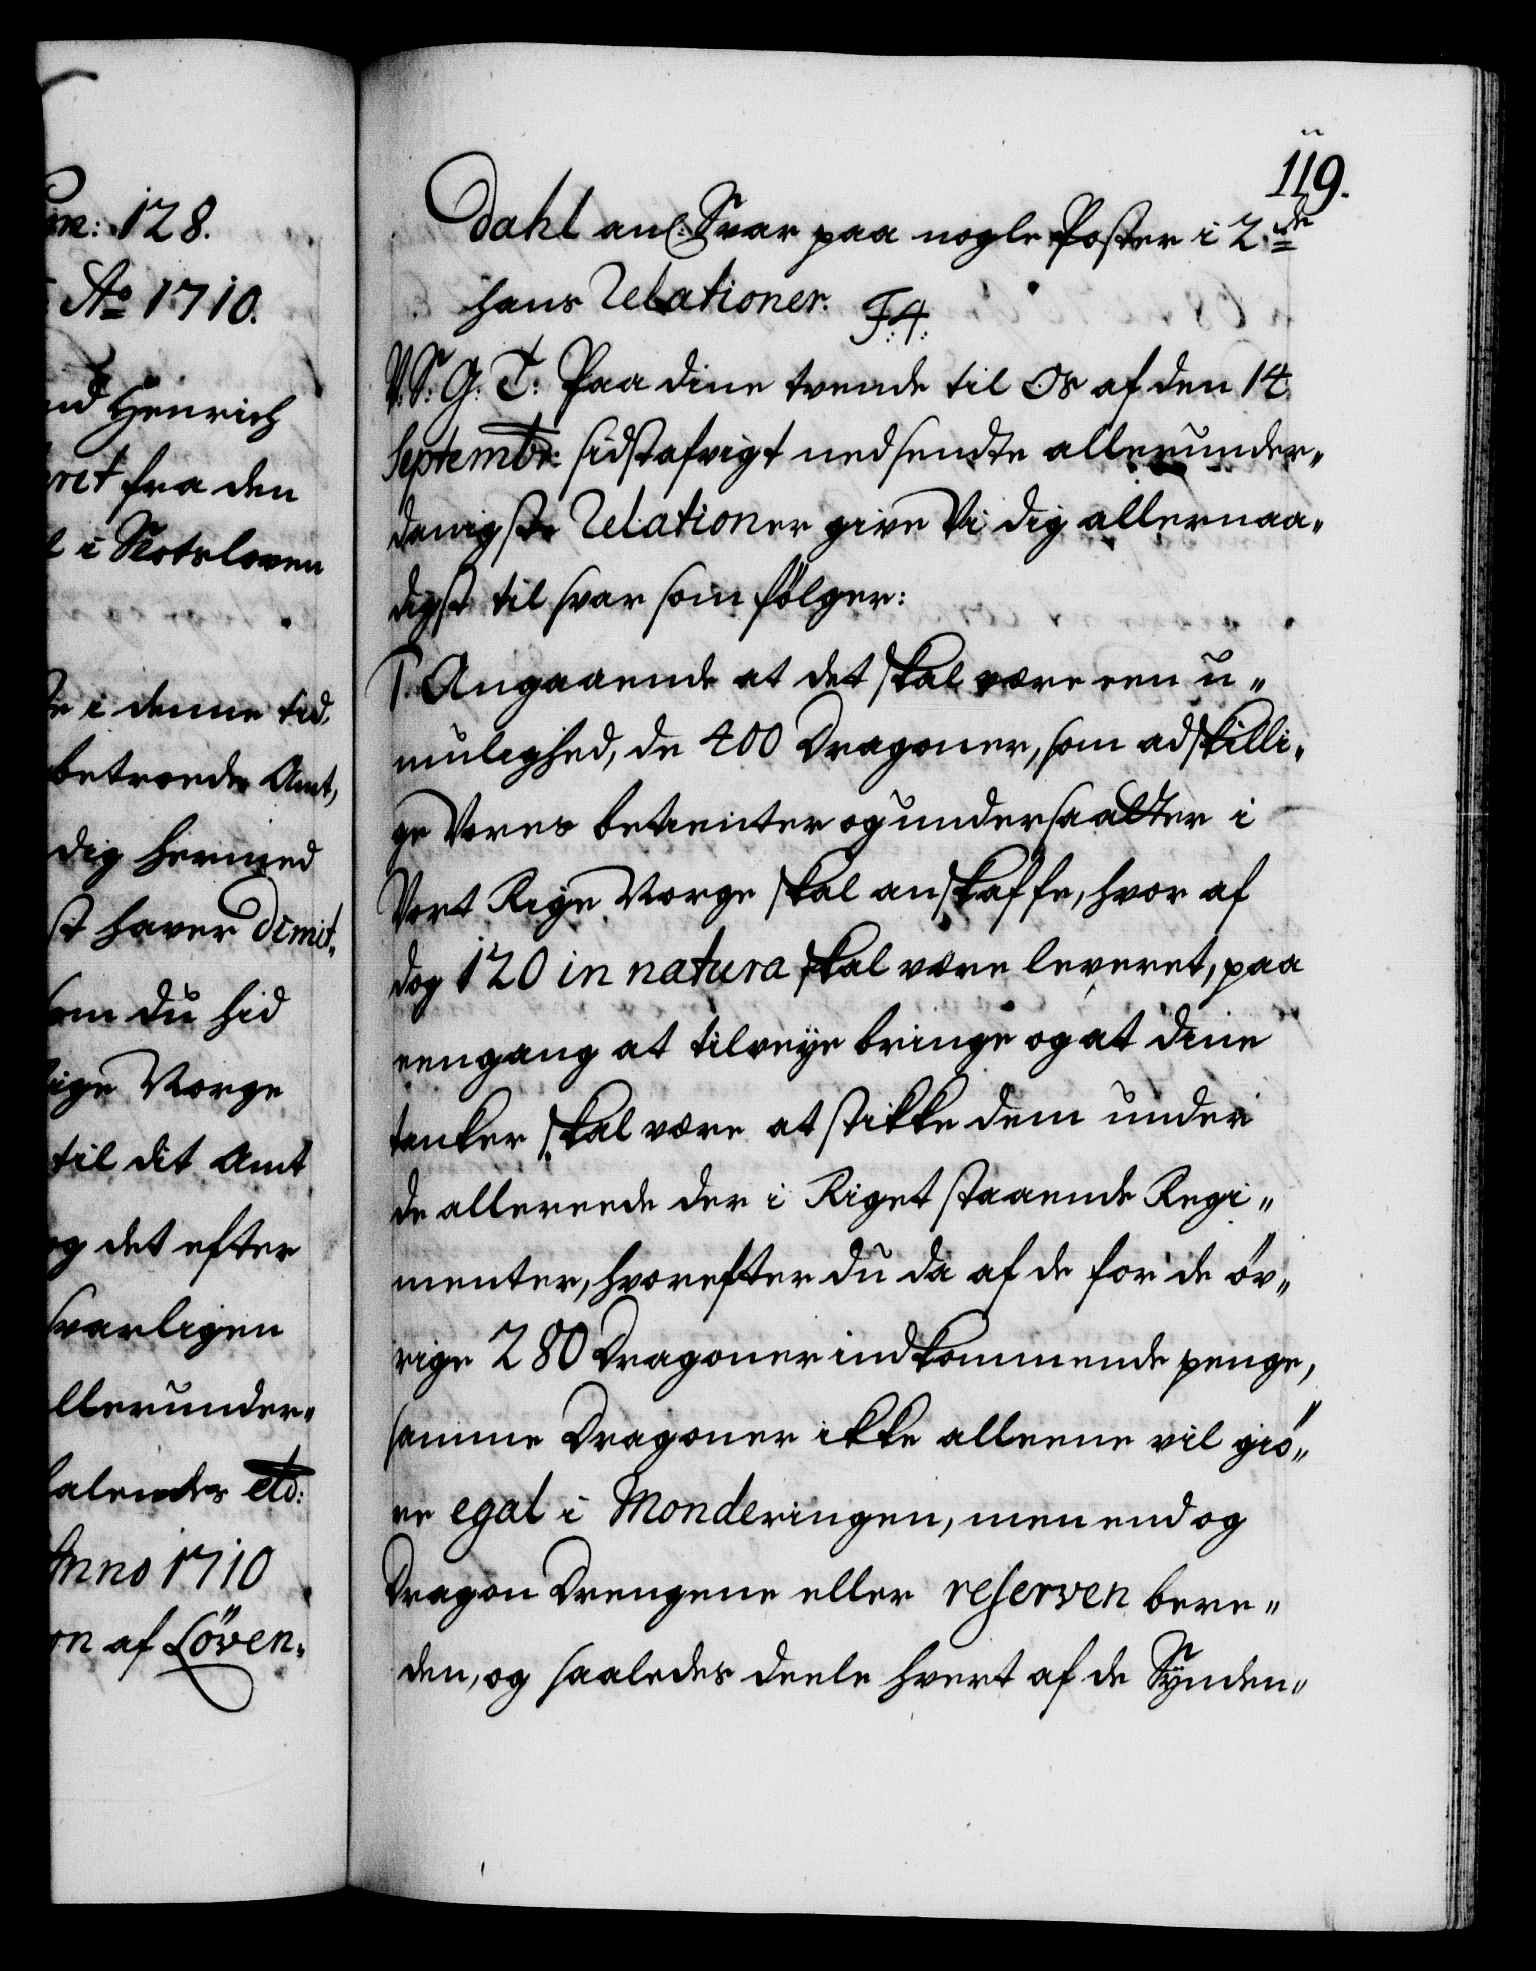 ne: 128.
Ao 1710.
nd Henrich
ret fra den
i Slotsloven
e i denne tid
betroede Amt,
dig hermed
st haver dimit-
som du hid
ige Norge
til dit Amt
og det efter
svarligen
llerunder-
alendes etc:
Anno 1710
on af Löven-
119.
Dahl anl. Svar paa nogle Poster i 2de
hans Relationer.
F. 4.
V. S. G. T. Paa dine tvende til Os af den 14
Septembr: sidstafvigt nedsendte allerunder-
danigste Relationer give Vi dig allernaa-
digst til svar som fölger:
1. Angaaende at det skal være een u-
mulighed, de 400 Dragoner, som adskilli-
ge Vores betienter og undersaatter i
Vort Rige Norge skal anskaffe, hvor af
dog 120 in natura skal være leveret, paa
eengang at tilveye bringe og at dine
tanker skal være at stikke dem under
de allereede der i Riget staaende Regi-
menter, hvorefter du da af de for de öv-
rige 280 Dragoner indkommende penge,
samme Dragoner ikke alleene vil giö-
re egal i Monderingen, men end og
Dragon Drengene eller reserven bere-
den, og saaledes deele hvert af de Synden-